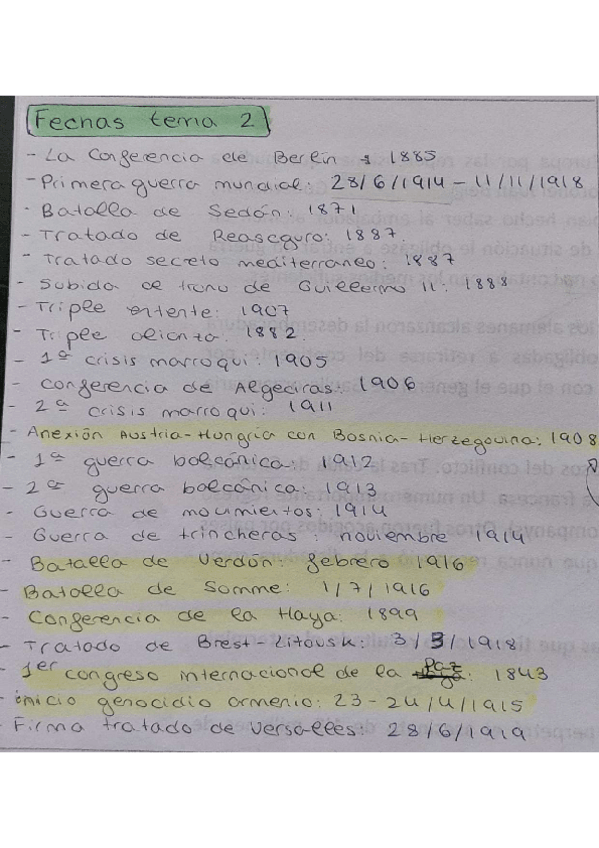 Fechas tema 2
- La Conferencia de Berlín : 1885
- Primera guerra mundial: 28/6/1914 - 11/11/1918
- Batalla de Sedán: 1871
- Tratado de Reaseguro: 1887
- Tratado secreto mediterraneo: 1887
- Subida al trono de Guillermo II: 1888
- Triple entente: 1907
- Triple alianza: 1882
- 1ª crisis marroqui: 1905
- Conferencia de Algeciras: 1906
- 2ª crisis marroqui: 1911
- Anexión Austria-Hungría con Bosnia-Herzegovina: 1908
- 1ª guerra balcánica: 1912
- 2ª guerra balcánica: 1913
- Guerra de movimientos: 1914
- Guerra de trincheras: noviembre 1914
- Batalla de Verdún: febrero 1916
- Batalla de Somme: 1/7/1916
- Conferencia de la Haya: 1899
- Tratado de Brest-Litovsk: 3/3/1918
- 1er congreso internacional de la Paz: 1843
- inicio genocidio armenio: 23-24/4/1915
- Firma tratado de Versalles: 28/6/1919